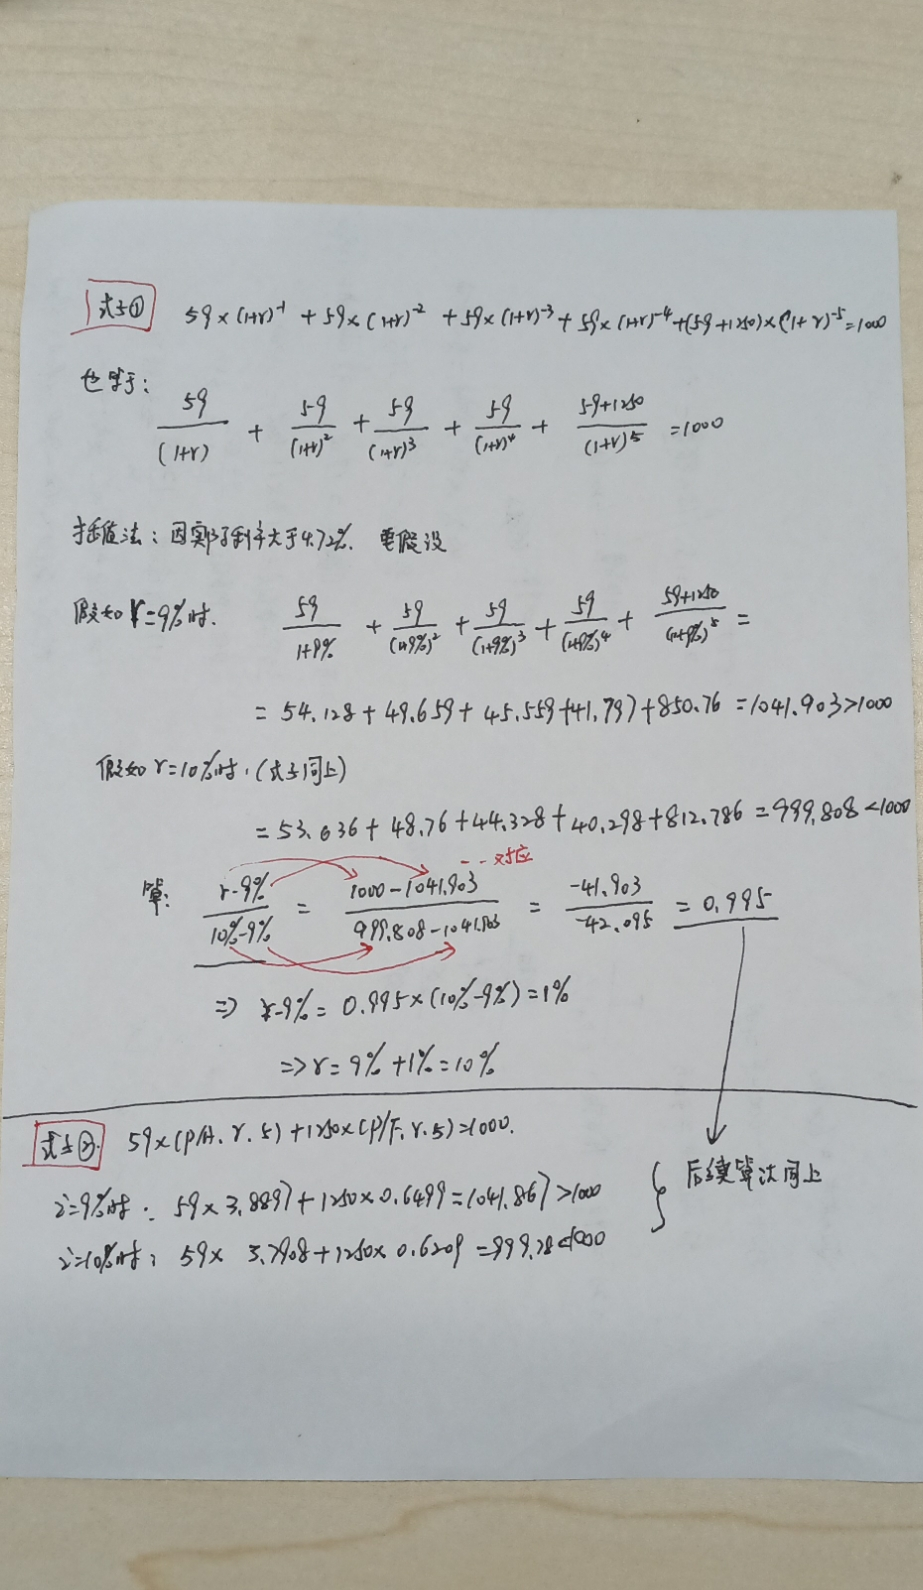 式子① 59×(1+r)⁻¹ + 59×(1+r)⁻² + 59×(1+r)⁻³ + 59×(1+r)⁻⁴ + (59+1250)×(1+r)⁻⁵ = 1000
也等于:
59/(1+r) + 59/(1+r)² + 59/(1+r)³ + 59/(1+r)⁴ + 59+1250/(1+r)⁵ = 1000
插值法: 因实际利率大于4.72%. 假设
假如 r=9%时. 59/1+9% + 59/(1+9%)² + 59/(1+9%)³ + 59/(1+9%)⁴ + 59+1250/(1+9%)⁵ =
= 54.128 + 49.659 + 45.559 + 41.797 + 850.76 = 1041.903>1000
假如 r=10%时. (式子同上)
= 53.636 + 48.76 + 44.328 + 40.298 + 812.786 = 999.808<1000
--对应
算: r-9%/10%-9% = 1000-1041.903/999.808-1041.903 = -41.903/-42.095 = 0.995
⇒ r-9% = 0.995×(10%-9%) = 1%
⇒ r = 9% + 1% = 10%
式子②. 59×(P/A. r. 5) + 1250×(P/F. r. 5) = 1000.
i=9%时: 59×3.8897+1250×0.6499=1041.867>1000
i=10%时: 59× 3.7908+1250× 0.6209 =999.78<1000
后续算法同上